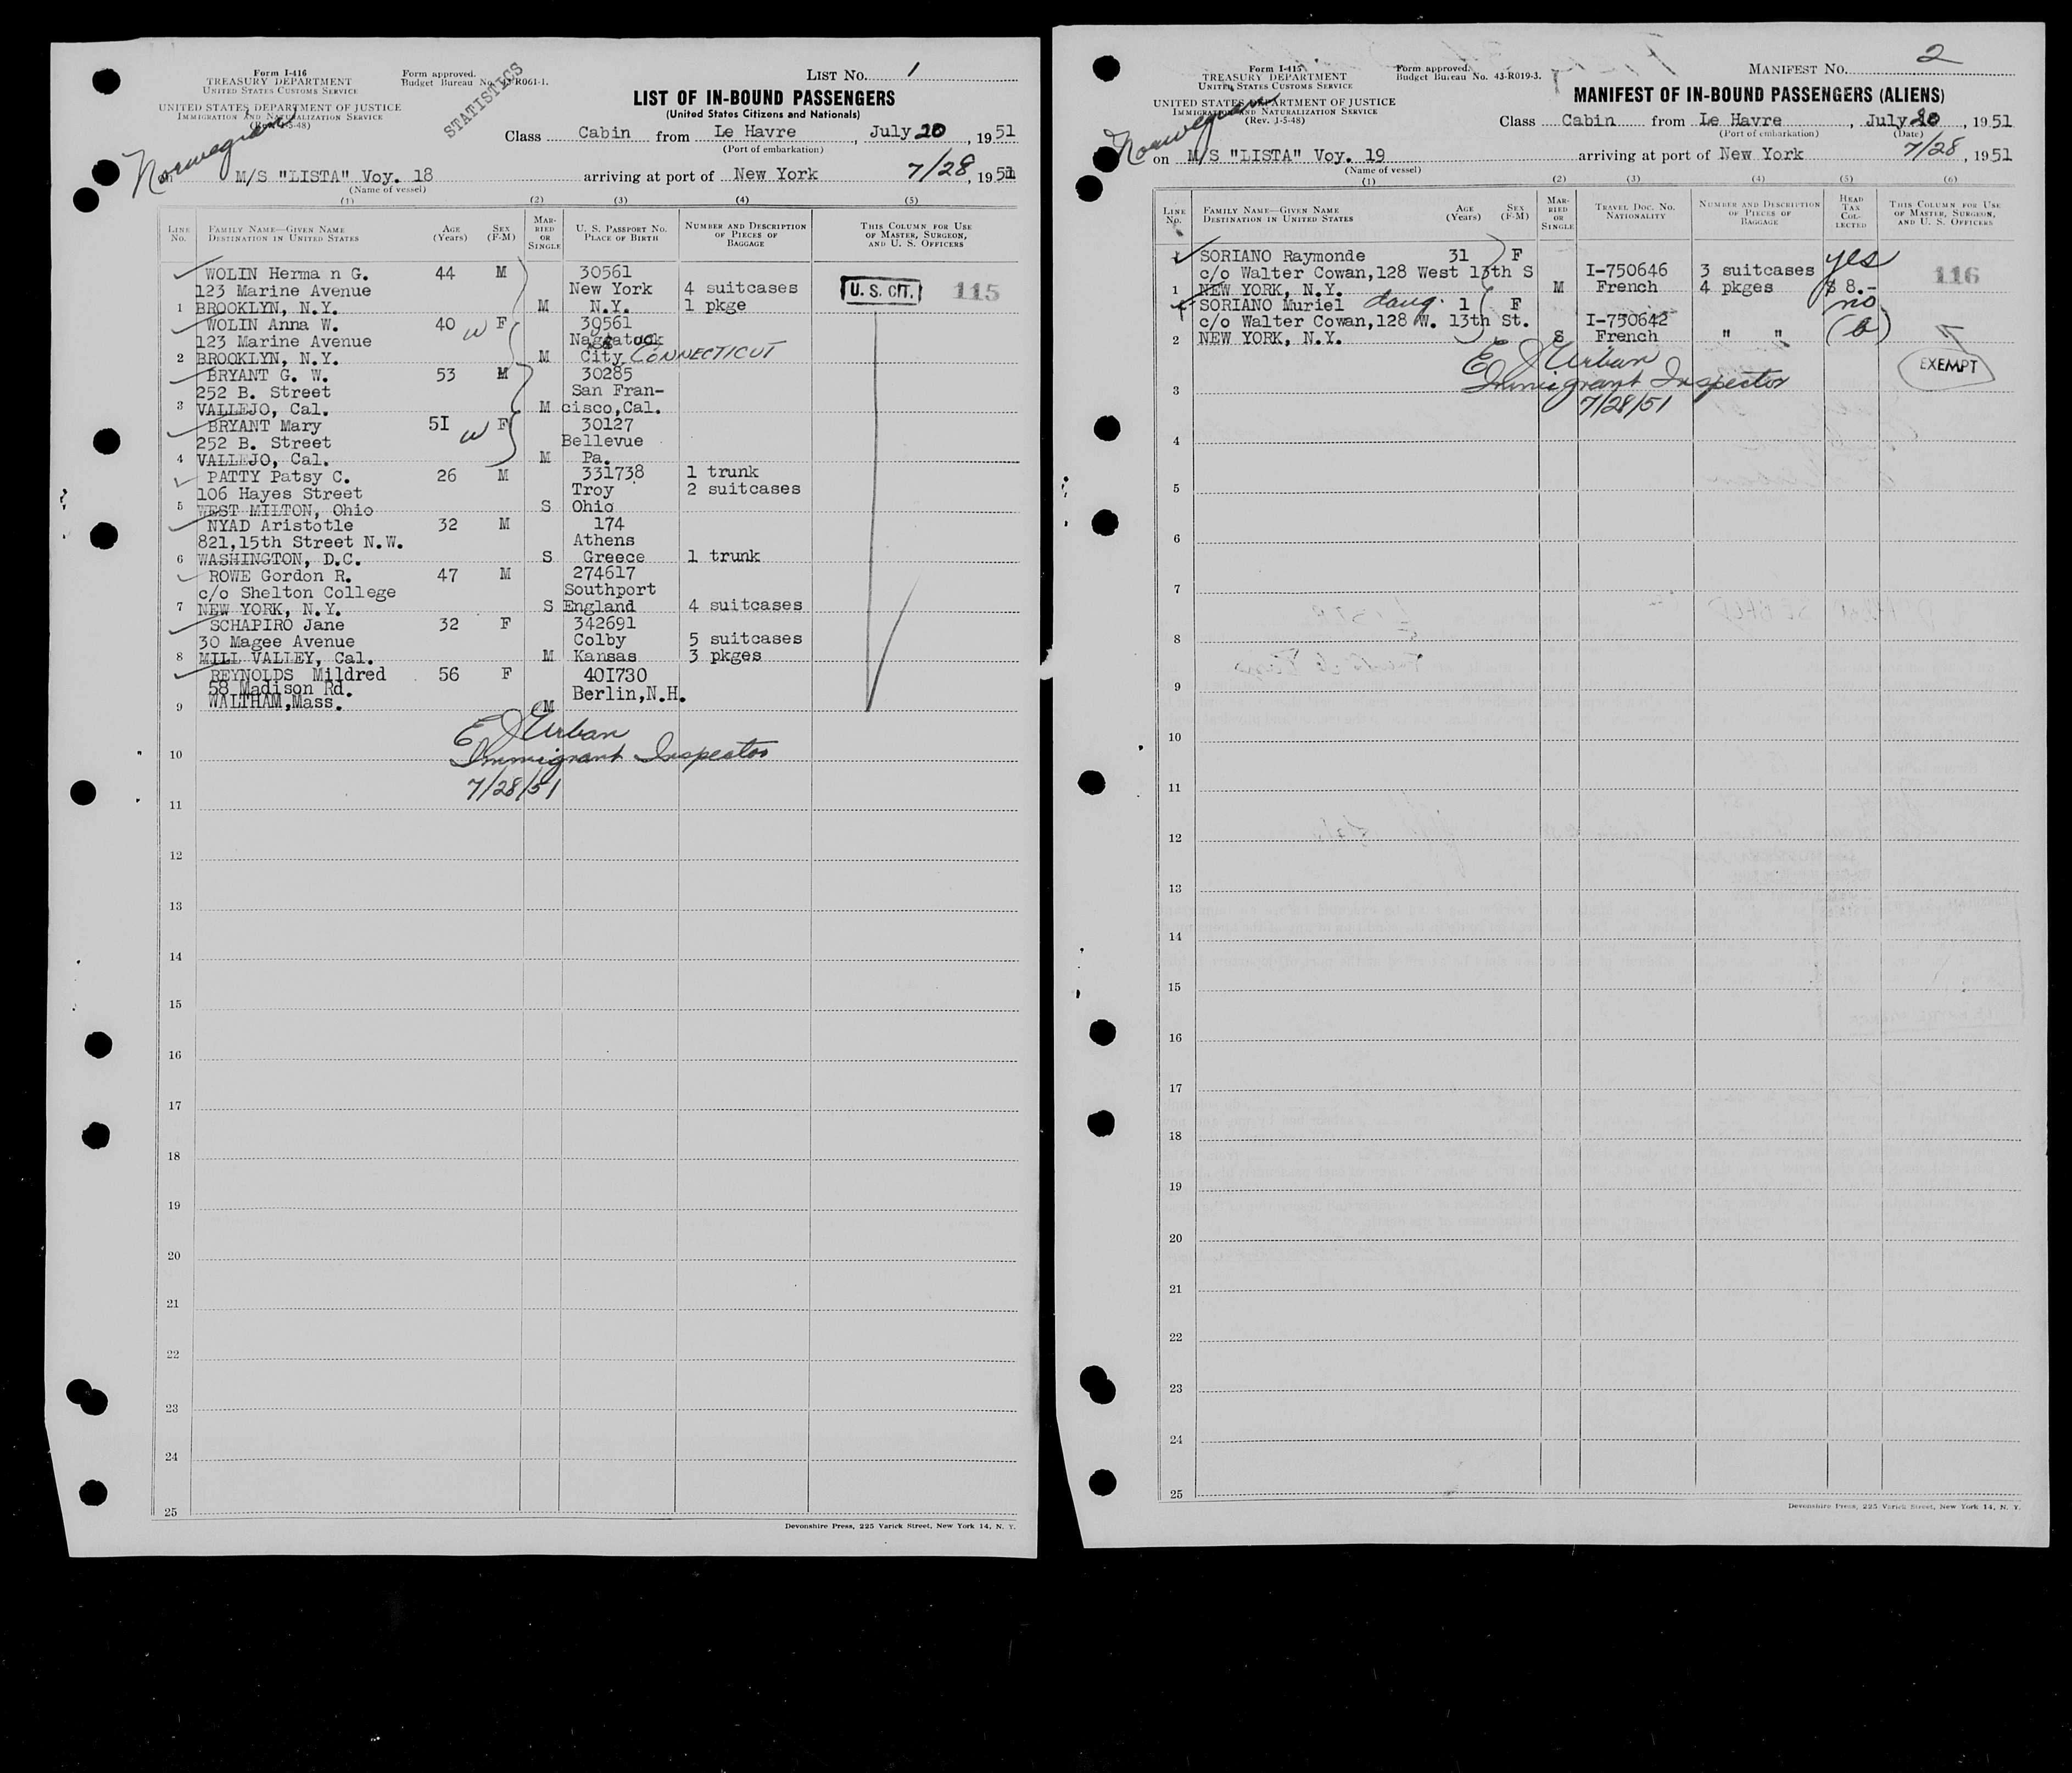 Form I-416
TREASURY DEPARTMENT
UNITED STATES CUSTOMS SERVICE
UNITED STATES DEPARTMENT OF JUSTICE
IMMIGRATION AND NATURALIZATION SERVICE
(Rev. 1-5-48)
Form approved.
Budget Bureau No. R061-1.
STATISTICS
LIST NO. 1
LIST OF IN-BOUND PASSENGERS
(United States Citizens and Nationals)
Class Cabin from Le Havre, July 20, 1951
(Port of embarkation)
Norwegian
M/S "LISTA" Voy. 18 arriving at port of New York 7/28, 1951
(Name of vessel)
(1) (2) (3) (4) (5)
LINE No. FAMILY NAME—GIVEN NAME DESTINATION IN UNITED STATES AGE (Years) SEX (F-M) MARRIED OR SINGLE U. S. PASSPORT NO. PLACE OF BIRTH NUMBER AND DESCRIPTION OF PIECES OF BAGGAGE THIS COLUMN FOR USE OF MASTER, SURGEON, AND U. S. OFFICERS
WOLIN Herma n G. 44 M 30561
123 Marine Avenue New York 4 suitcases U. S. CIT. 115
1 BROOKLYN, N.Y. M N.Y. 1 pkge
WOLIN Anna W. 40 w F 30561
123 Marine Avenue
2 BROOKLYN, N.Y. M City CONNECTICUT
BRYANT G. W. 53 M 30285
252 B. Street San Fran-
3 VALLEJO, Cal. M cisco,Cal.
BRYANT Mary 5I w F 30127
252 B. Street Bellevue
4 VALLEJO, Cal. M Pa.
PATTY Patsy C. 26 M 331738 1 trunk
106 Hayes Street Troy 2 suitcases
5 WEST MILTON, Ohio S Ohio
NYAD Aristotle 32 M 174
821,15th Street N.W. Athens
6 WASHINGTON, D.C. S Greece 1 trunk
ROWE Gordon R. 47 M 274617
c/o Shelton College Southport
7 NEW YORK, N.Y. S England 4 suitcases
SCHAPIRO Jane 32 F 342691
30 Magee Avenue Colby 5 suitcases
8 MILL VALLEY, Cal. M Kansas 3 pkges
REYNOLDS Mildred 56 F 40I730
58 Madison Rd. Berlin,N.H.
9 WALTHAM,Mass. M
E J Urban
10 Immigrant Inspector
7/28/51
11
12
13
14
15
16
17
18
19
20
21
22
23
24
25
Devonshire Press, 225 Varick Street, New York 14, N. Y.
Form I-415
TREASURY DEPARTMENT
UNITED STATES CUSTOMS SERVICE
UNITED STATES DEPARTMENT OF JUSTICE
IMMIGRATION AND NATURALIZATION SERVICE
(Rev. 1-5-48)
Form approved.
Budget Bureau No. 43-R019-3.
MANIFEST NO. 2
MANIFEST OF IN-BOUND PASSENGERS (ALIENS)
Class Cabin from Le Havre, July 20, 1951
(Port of embarkation) (Date)
Norwegian
on M/S "LISTA" Voy. 19 arriving at port of New York 7/28, 1951
(Name of vessel)
(1) (2) (3) (4) (5) (6)
LINE No. FAMILY NAME—GIVEN NAME DESTINATION IN UNITED STATES AGE (Years) SEX (F-M) MARRIED OR SINGLE TRAVEL DOC. NO. NATIONALITY NUMBER AND DESCRIPTION OF PIECES OF BAGGAGE HEAD TAX COLLECTED THIS COLUMN FOR USE OF MASTER, SURGEON, AND U. S. OFFICERS
SORIANO Raymonde 31 F yes
c/o Walter Cowan,128 West 13th S I-750646 3 suitcases 116
1 NEW YORK, N.Y. M French 4 pkges $ 8.-
SORIANO Muriel daug. 1 F no
c/o Walter Cowan,128 W. 13th St. I-750642
2 NEW YORK, N.Y. S French " "
E J Urban EXEMPT
3 Immigrant Inspector
7/28/51
4
5
6
7
8
9
10
11
12
13
14
15
16
17
18
19
20
21
22
23
24
25
Devonshire Press, 225 Varick Street, New York 14, N. Y.